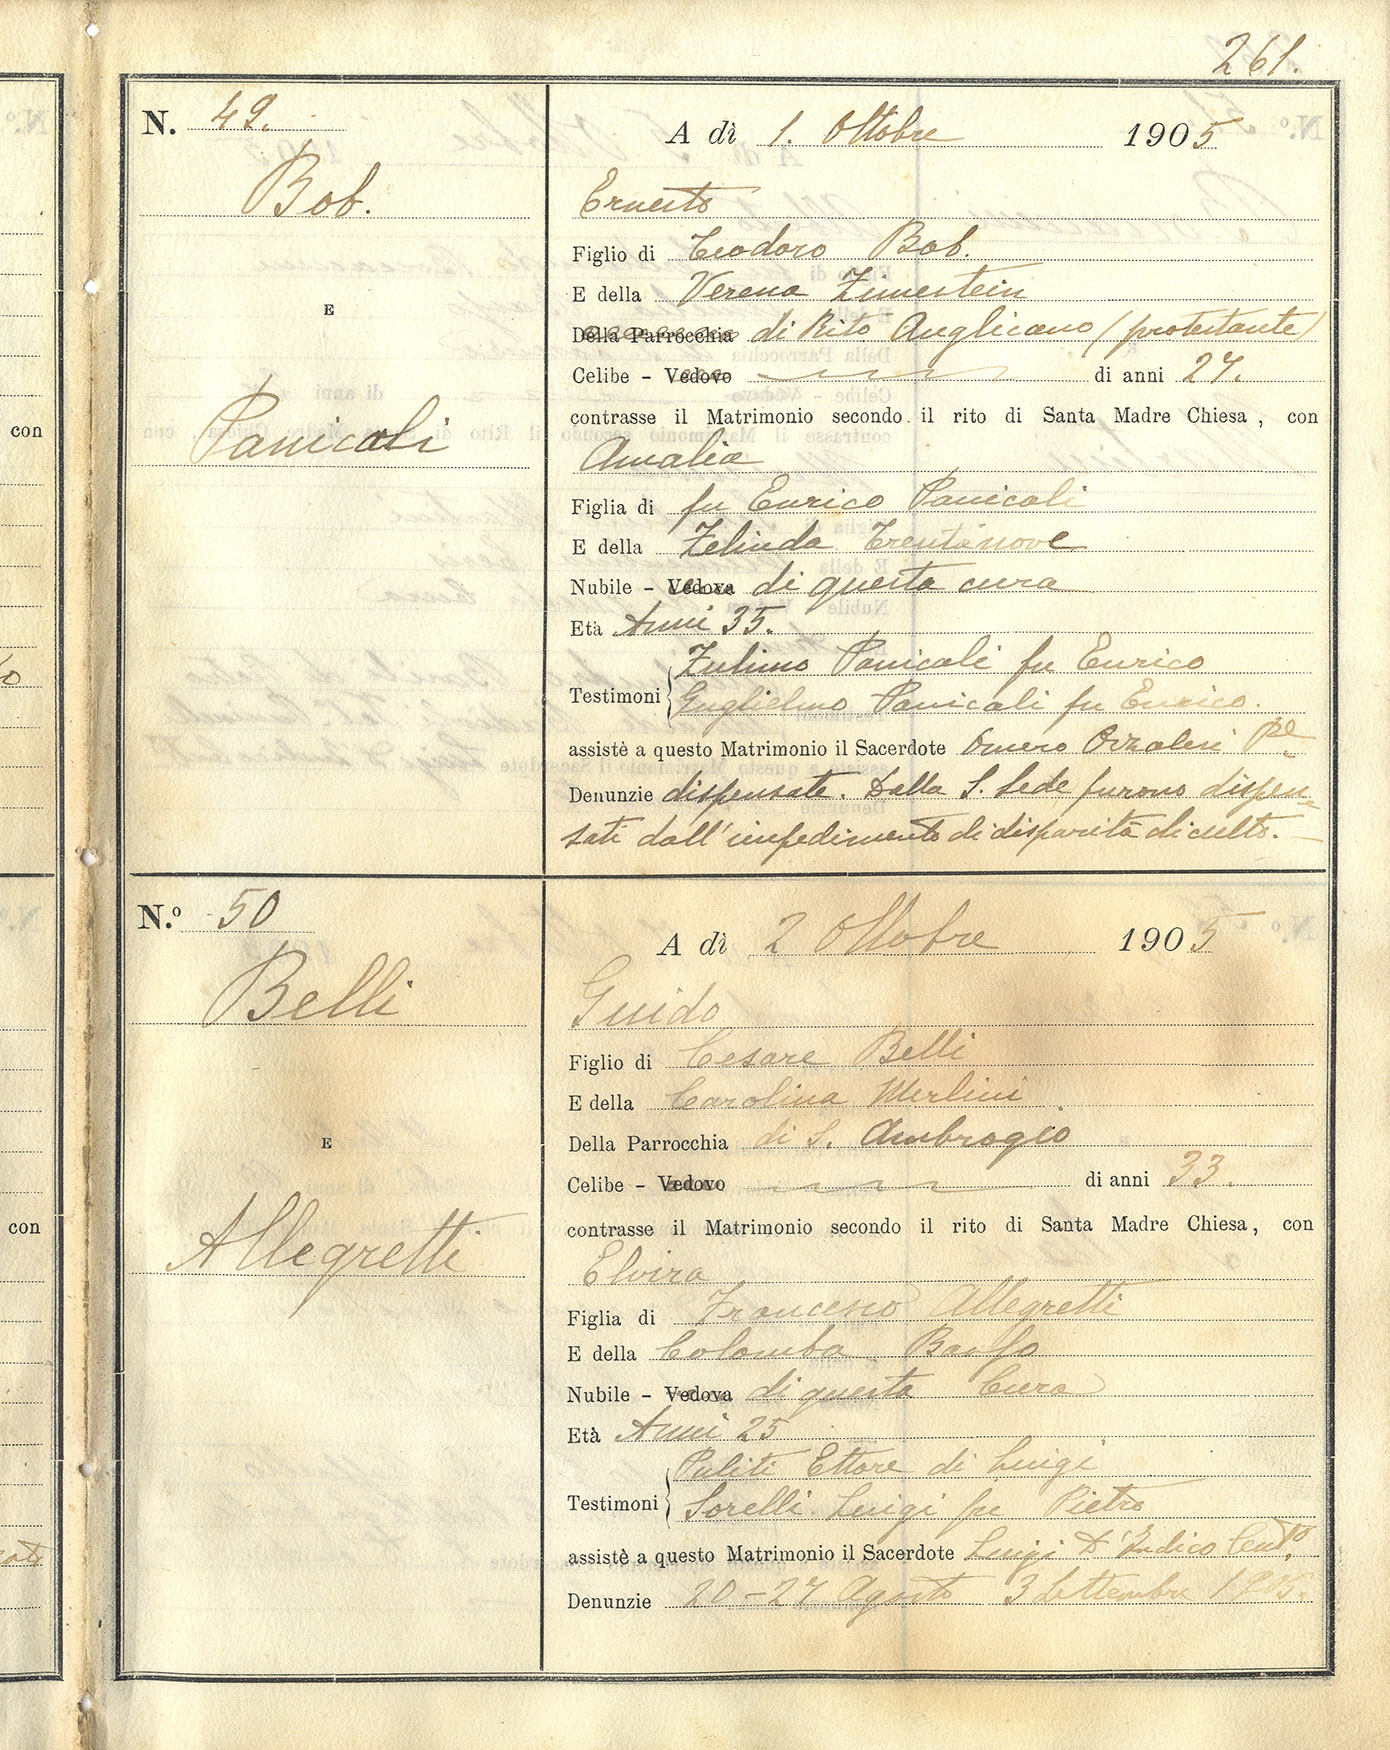 261.
N. 49.
A dì 1. Ottobre 1905
Bob.
Ernesto
Figlio di Teodoro Bob.
E della Verena Zimerstein
E
Della Parrocchia di Rito Anglicano (protestante)
Celibe - Vedovo di anni 27.
con
contrasse il Matrimonio secondo il rito di Santa Madre Chiesa, con
Panicali
Amalia
Figlia di fu Enrico Panicali
E della Zelinda Trentanove
Nubile - Vedova di questa cura
Età Anni 35.
Testimoni Zulimo Panicali fu Enrico
Guglielmo Panicali fu Enrico.
assistè a questo Matrimonio il Sacerdote Omero
Denunzie dispensate. Dalla S. Sede furono dispen=
sati dall'impedimento di disparità di culto.
N.o 50
A dì 2 Ottobre 1905
Belli
Guido
Figlio di Cesare Belli
E della Carolina Merlini
E
Della Parrocchia di S. Ambrogio
Celibe - Vedovo di anni 33.
con
contrasse il Matrimonio secondo il rito di Santa Madre Chiesa, con
Allegretti
Elvira
Figlia di Francesco Allegretti
E della Colomba
Nubile - Vedova di questa Cura
Età Anni 25
Testimoni Puliti Ettore di Luigi
Sorelli Luigi fu Pietro
assistè a questo Matrimonio il Sacerdote Luigi
Denunzie 20-27 Agosto 3 Settembre 1905.